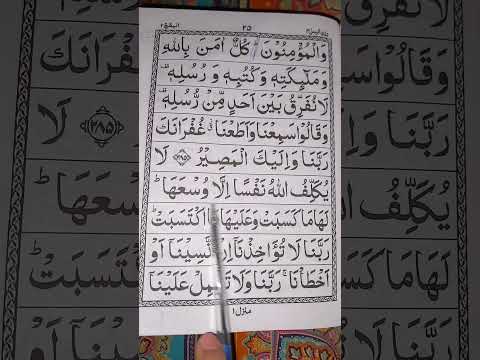 ۲۵
وَالْمُؤْمِنُوْنَ ؕ كُلٌّ اٰمَنَ بِاللّٰهِ
وَمَلٰٓئِكَتِهٖ وَكُتُبِهٖ وَرُسُلِهٖ ۫
لَا نُفَرِّقُ بَيْنَ اَحَدٍ مِّنْ رُّسُلِهٖ ۫
وَقَالُوْا سَمِعْنَا وَاَطَعْنَا ٭ۗ غُفْرَانَكَ
رَبَّنَا وَاِلَيْكَ الْمَصِيْرُ ﴿۲۸۵﴾ لَا
يُكَلِّفُ اللّٰهُ نَفْسًا اِلَّا وُسْعَهَا ؕ
لَهَا مَا كَسَبَتْ وَعَلَيْهَا اكْتَسَبَتْ ؕ
رَبَّنَا لَا تُؤَاخِذْنَاۤ اِنْ نَّسِيْنَاۤ اَوْ
اَخْطَاْنَا ۚ رَبَّنَا وَلَا تَحْمِلْ عَلَيْنَاۤ
منزل ۱